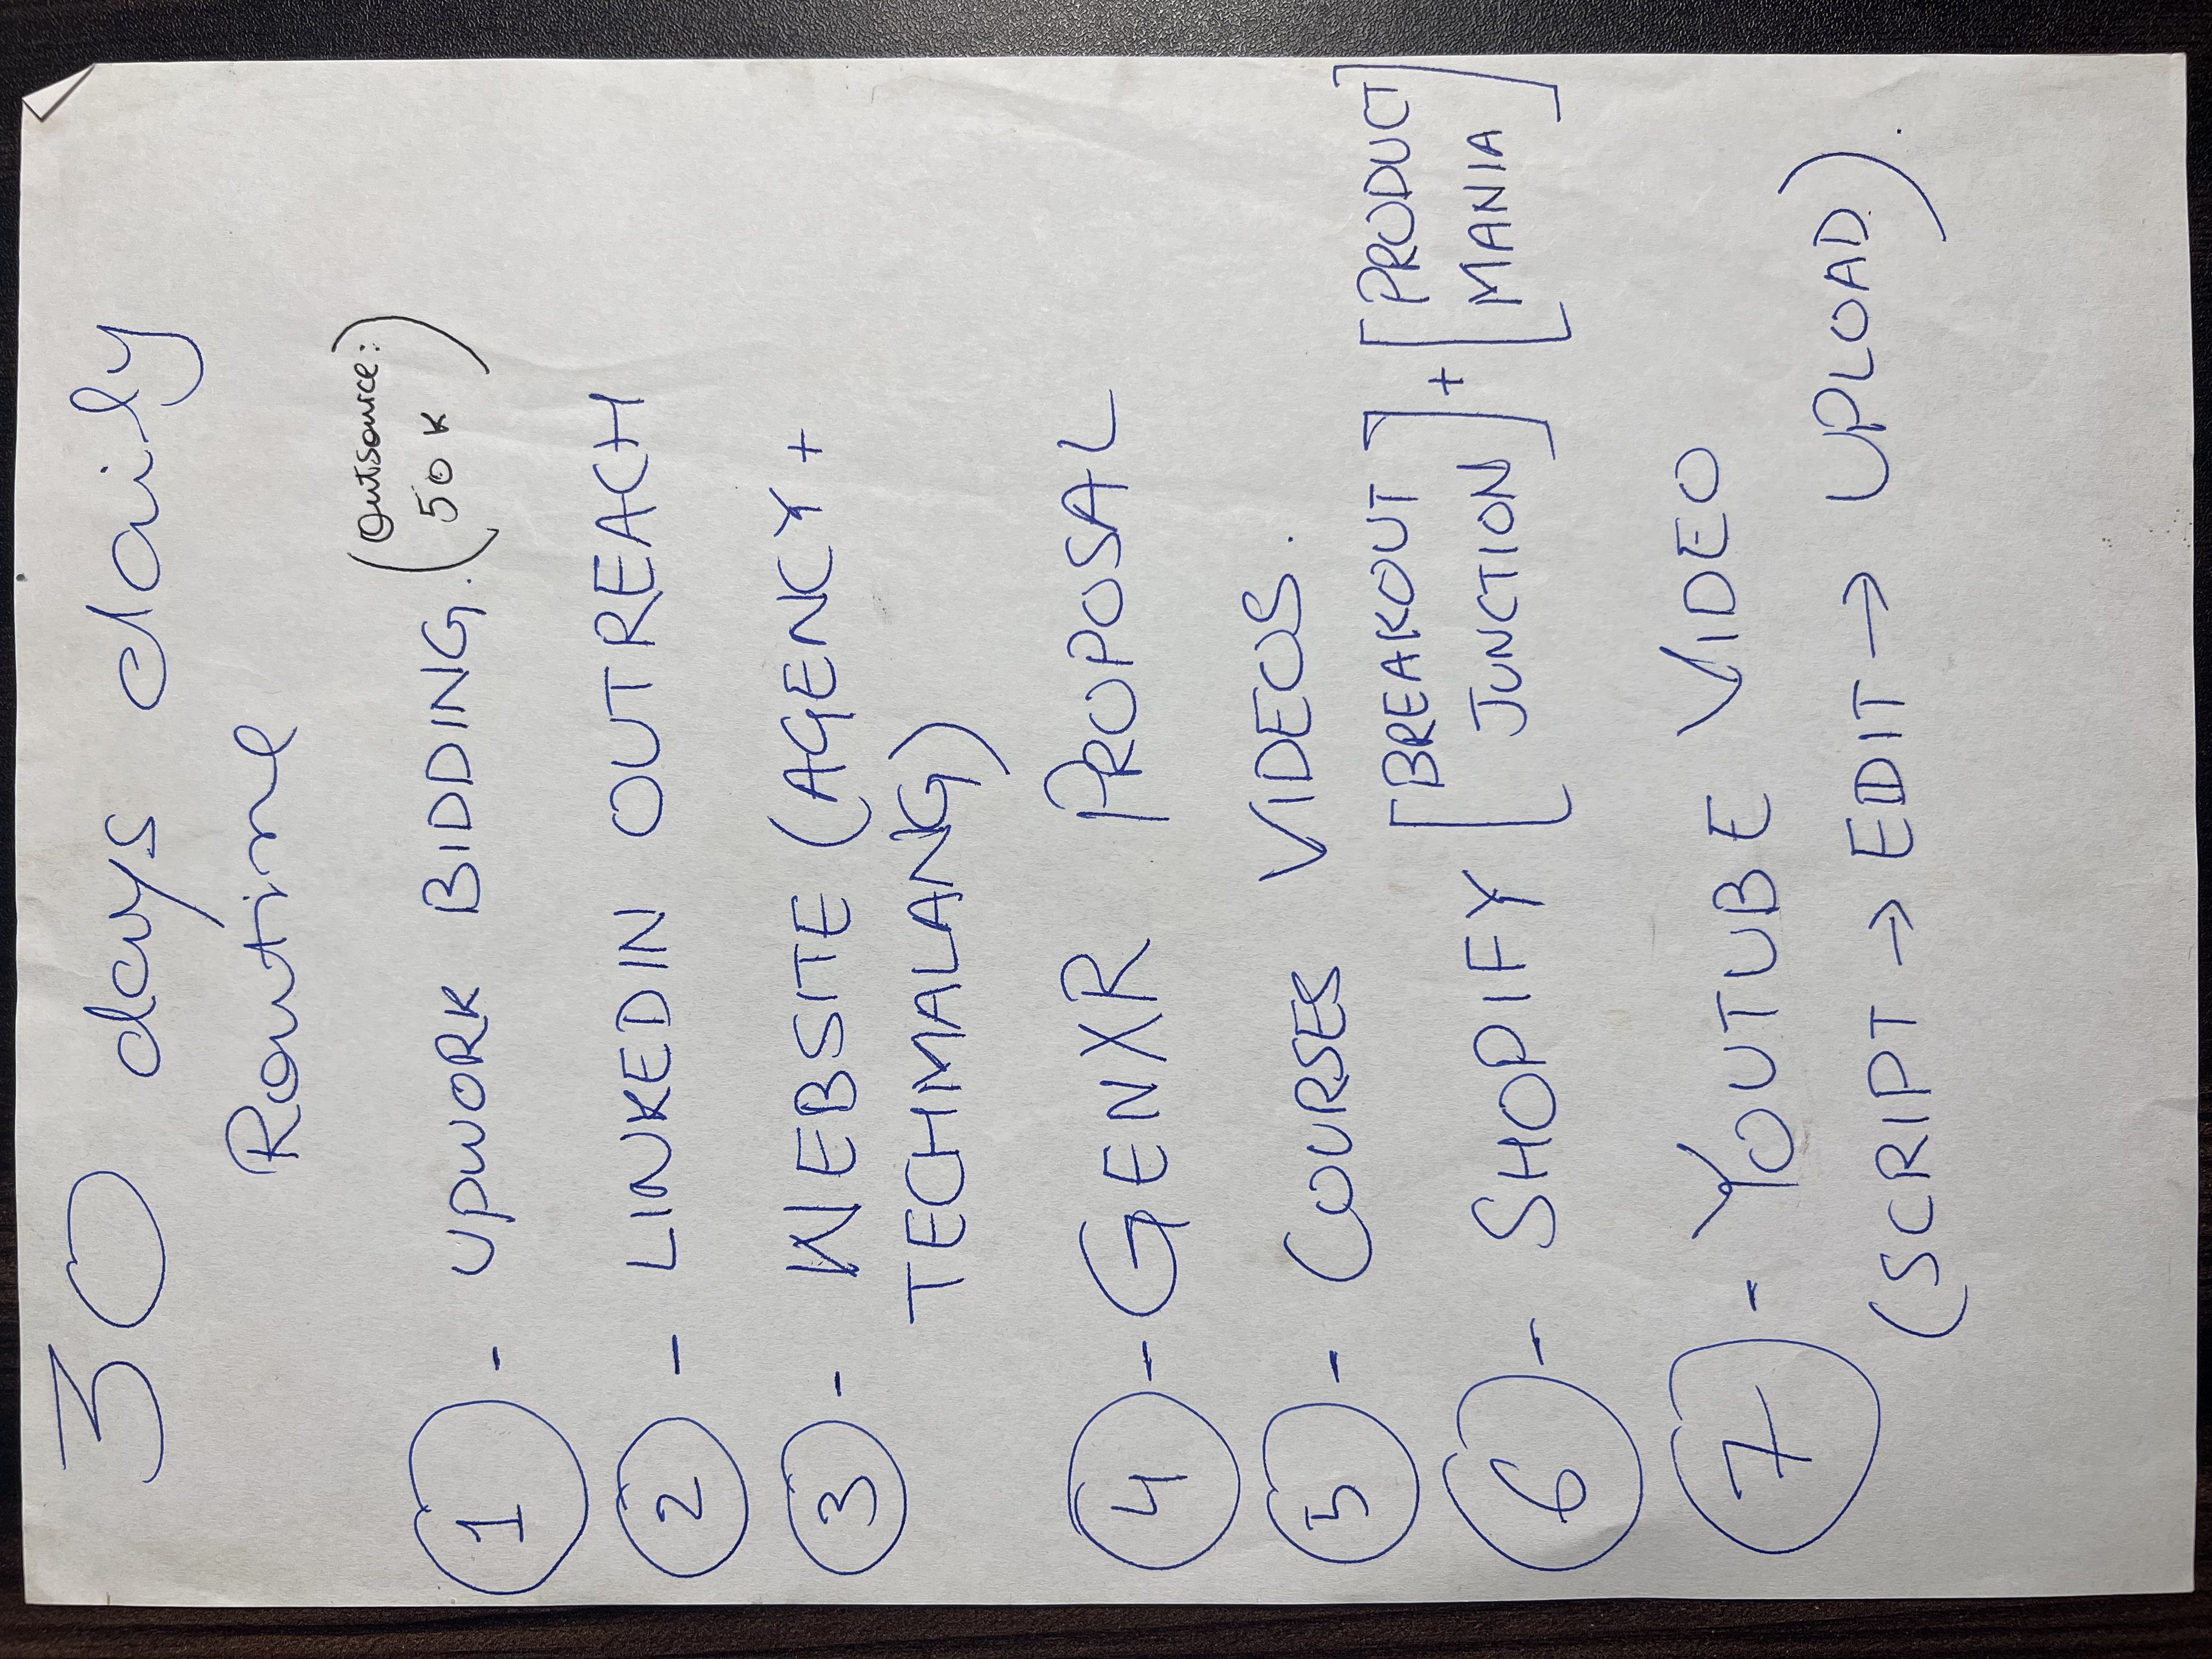 30 days daily
Routine
1 - UPWORK BIDDING. (Outsource:
50 K)
2 - LINKEDIN OUTREACH
3 - WEBSITE (AGENCY +
TECHMALANG)
4 - GENXR PROPOSAL
5 - COURSES VIDEOS.
6 - SHOPIFY [BREAKOUT JUNCTION] + [PRODUCT MANIA]
7 - YOUTUBE VIDEO
(SCRIPT → EDIT → UPLOAD).